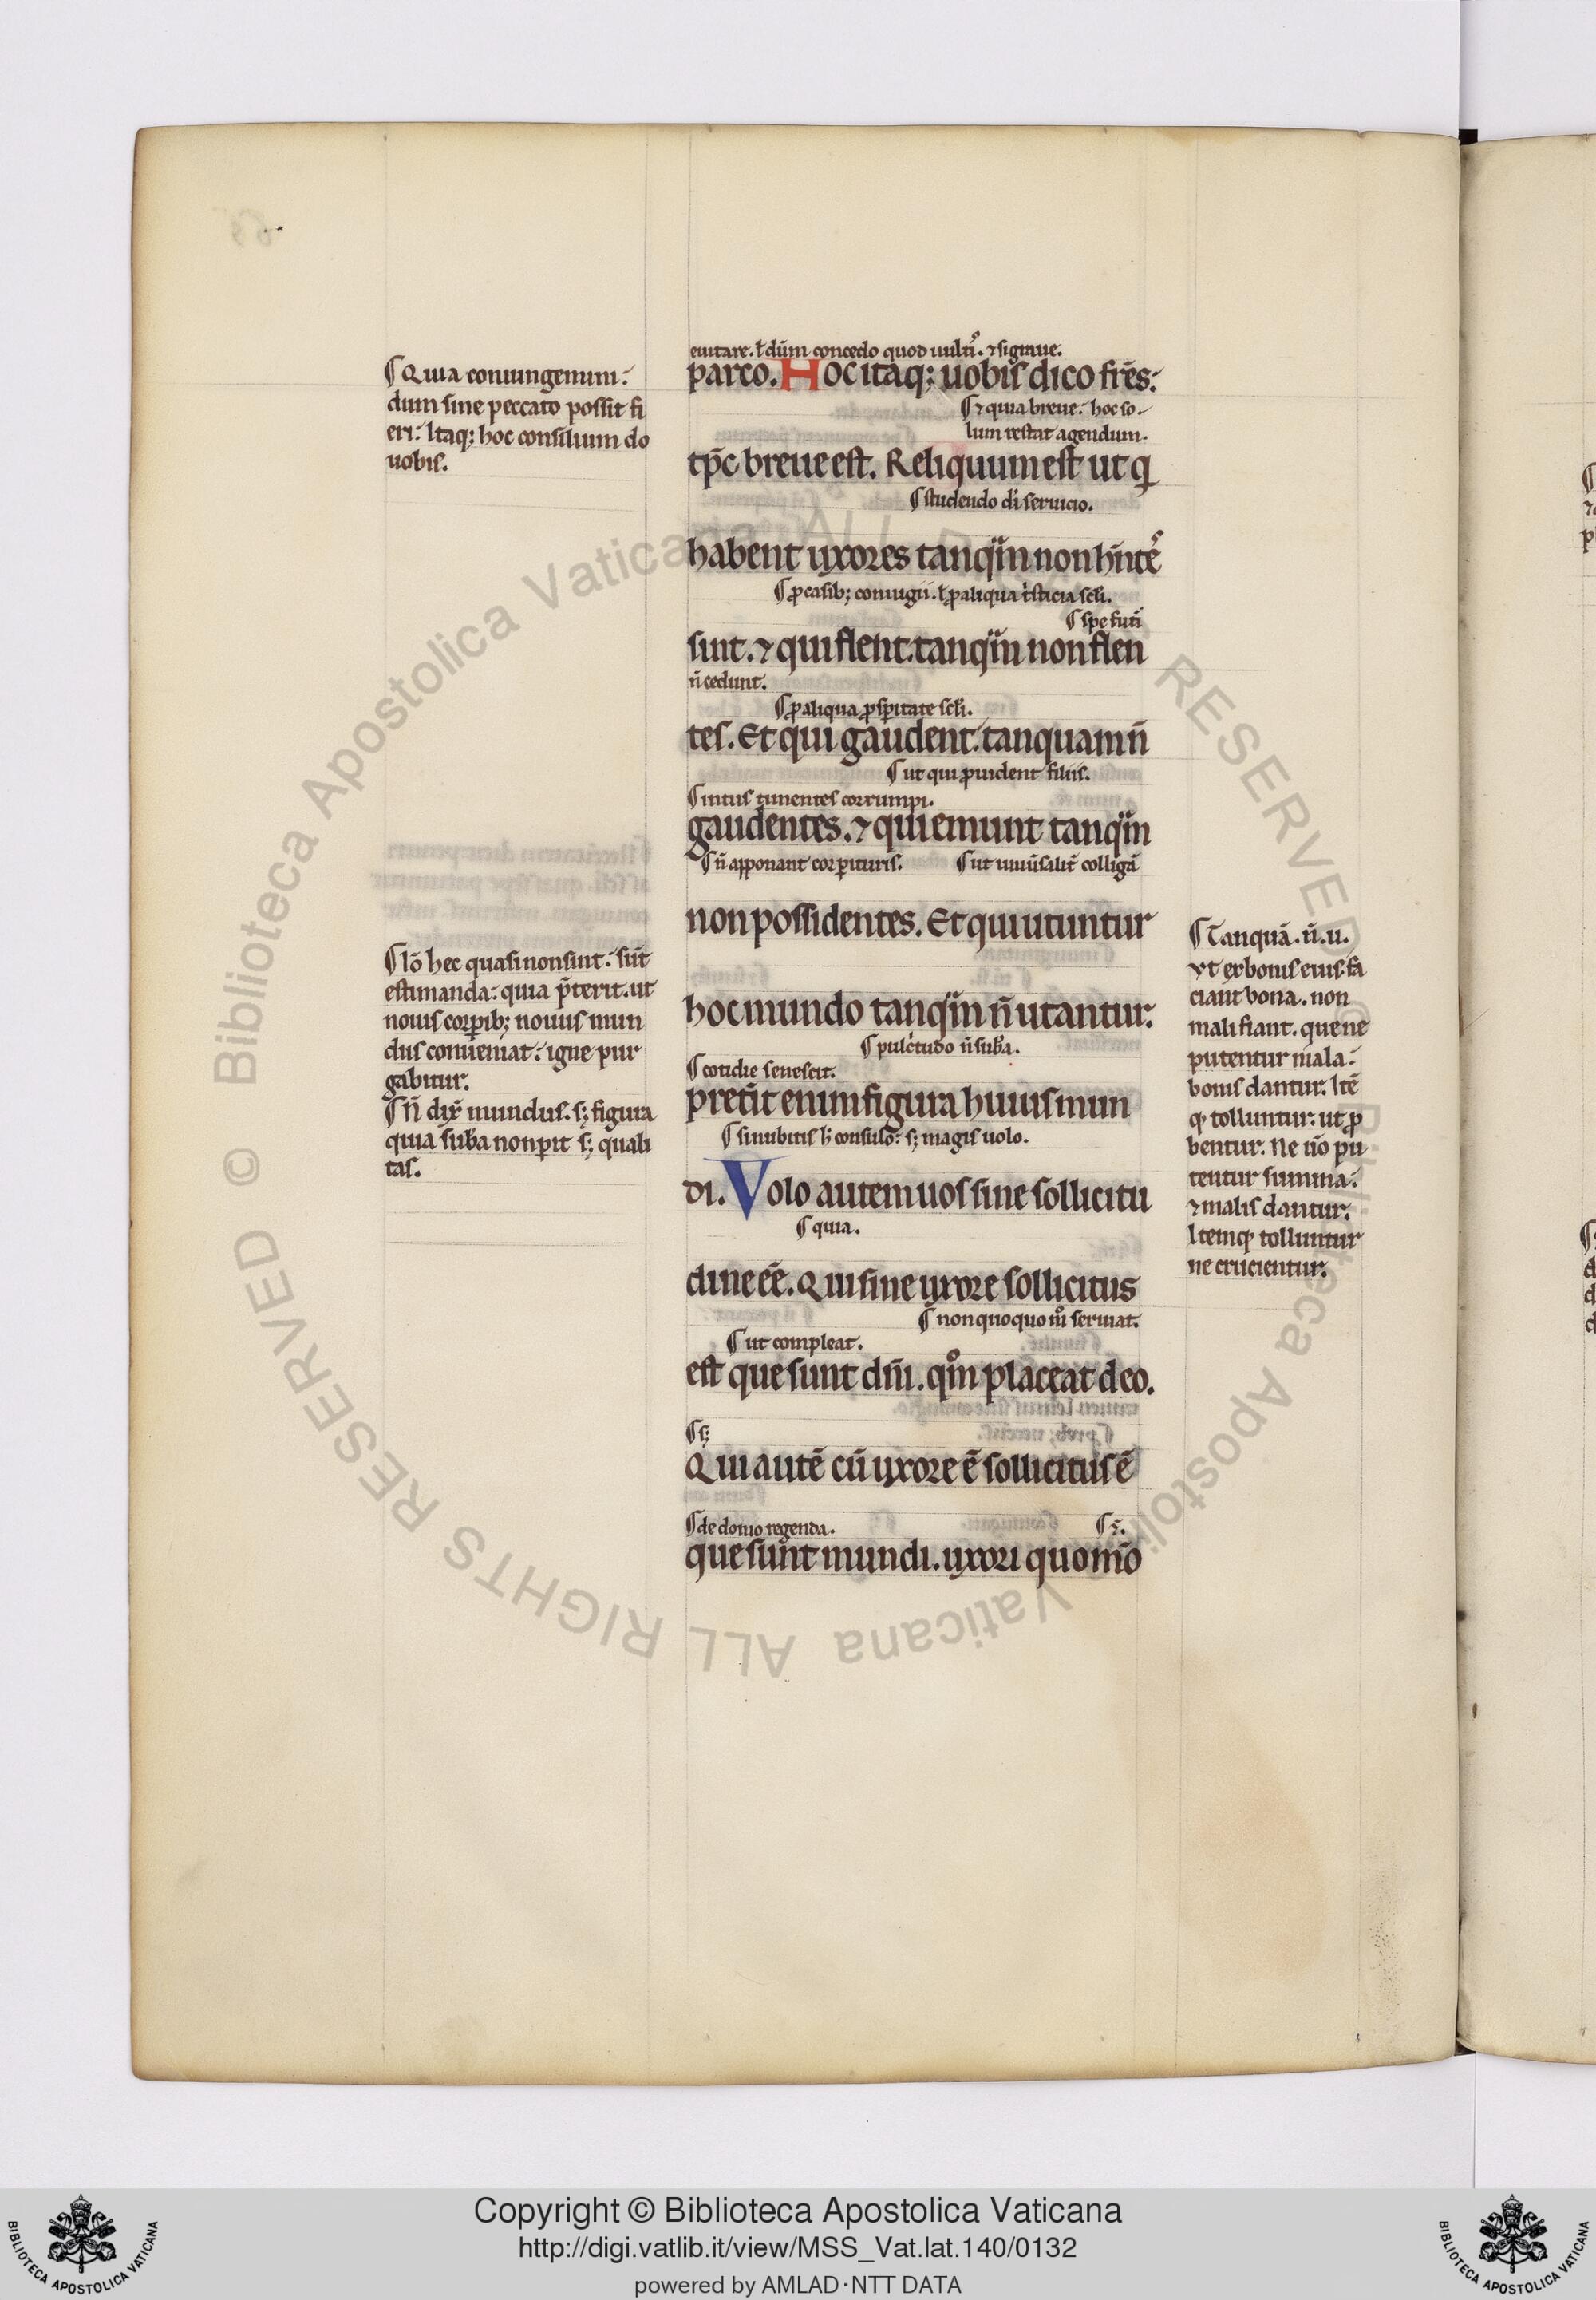 ¶ Quia coniungenum:
dum sine peccato possit fi
eri: Itaq; hoc consilium do
uobis.
euitare. ł dum concedo quod uultis. ⁊ signaue.
parco. Hoc itaq; uobis dico fr̄es:
¶ ⁊ quia breue: hoc so
lum restat agendum.
tp̄c breue est. Reliquum est ut q
¶ studendo di seruicio.
habent uxores tanq̄m non hn̄tes
¶ ꝓ casib; coniugii. ł ꝓ aliqua tisticia scl̄i.
¶ spe futi
sint. ⁊ qui flent. tanq̄m non flen
n̄ cedunt.
¶ ꝓ aliqua ꝓspitate scl̄i.
tes. Et qui gaudent. tanquam n̄
¶ ut qui ꝓuident filiis.
¶ intus timentes corrumpi.
gaudentes. ⁊ qui emunt tanq̄m
¶ n̄ apponant cor ꝑituris. ¶ ut uniūsalit̄ colligā
non possidentes. Et qui utuntur
hoc mundo tanq̄m n̄ utantur.
¶ pulcͥtudo n̄ suba.
¶ cotidie senescit.
pretit̄ enim figura huius mun
¶ si nubitis h̄ consulo: s; magis uolo.
di. Volo autem uos sine sollicitu
¶ quia.
dine eē. Qui sine uxore sollicitus
¶ non quoquo m̊ seruiat.
¶ ut compleat.
est que sunt dn̄i. qm̊ placeat deo.
¶ s;
Qui autē cū uxore ē sollicitus ē
¶ de domo regenda. ¶ .s̄.
que sunt mundi. uxori quom̄o
¶ Iō hec quasi non sint: sūt
estimanda: quia p̄terit. ut
nouis corꝑib; nouus mun
dus conueniat: igne pur
gabitur.
¶ N̄ dix̄ mundus. s; figura
quia suba non ꝑit s; quali
tas.
¶ Tanquā. n̄. u.
Vt ex bonis eius fa
ciant bona. non
mali fiant. que ne
putentur mala:
bonis dantur. Itē
q; tolluntur: ut ꝓ
bentur. Ne ūo pu
tentur summa:
⁊ malis dantur.
Itemq; tolluntur
ne crucientur.
Copyright © Biblioteca Apostolica Vaticana
http://digi.vatlib.it/view/MSS_Vat.lat.140/0132
powered by AMLAD·NTT DATA
BIBLIOTECA APOSTOLICA VATICANA
BIBLIOTECA APOSTOLICA VATICANA
© Biblioteca Apostolica Vaticana ALL RIGHTS RESERVED
© Biblioteca Apostolica Vaticana ALL RIGHTS RESERVED